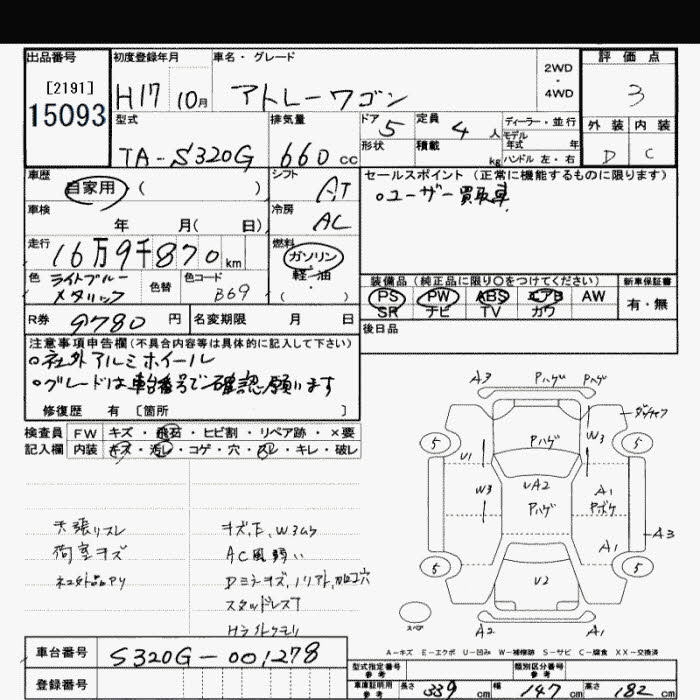 出品番号 初度登録年月 車名・グレード 2WD ・ 4WD 評価点
[2191]
15093 H17 10月 アトレーワゴン 3
型式 排気量 ドア 定員 ディーラー・並行 外装 内装
TA-S320G 660 CC 5 4 人 モデル年式 年
形状 積載 kg ハンドル 左・右 D C
車歴 シフト セールスポイント(正常に機能するものに限ります)
自家用 ( ) AT oユーザー買取車
車検 冷房
年 月( 日) AC
走行 燃料
16万9千870 km ガソリン
軽・油
( ・ )
色 ライトブルーメタリック 色替 色コード B69
装備品(純正品に限り○をつけてください) 新車保証書
PS PW ABS エアB AW 有・無
SR ナビ TV カワ
R券 9780 円 名変期限 月 日 後日品
注意事項申告欄(不具合内容等は具体的に記入して下さい)
o社外アルミホイール
oグレードは車台番号で確認願います
修復歴 有 [箇所 ]
検査員 FW キズ・飛石・ヒビ割・リペア跡・×要
記入欄 内装 キズ・汚レ・コゲ・穴・スレ・キレ・破レ
天張リスレ キズ,E,W3ムラ
荷室キズ AC風弱い
スタッドレスT
Hライトクモリ
A3 Pハゲ Pハゲ
5 5
U1 Pハゲ W3
W3 UA2 A1
Pハゲ Pボケ
A1 A3
5 5
U2
スペア
A2 A1
A-キズ E-エクボ U-凹み W-補修跡 S-サビ C-腐食 XX-交換済
車台番号 S320G-001278
型式指定番号 参考 類別区分番号 参考
登録番号 車庫証明用 参考 長さ 339 cm 幅 147 cm 高さ 182 cm